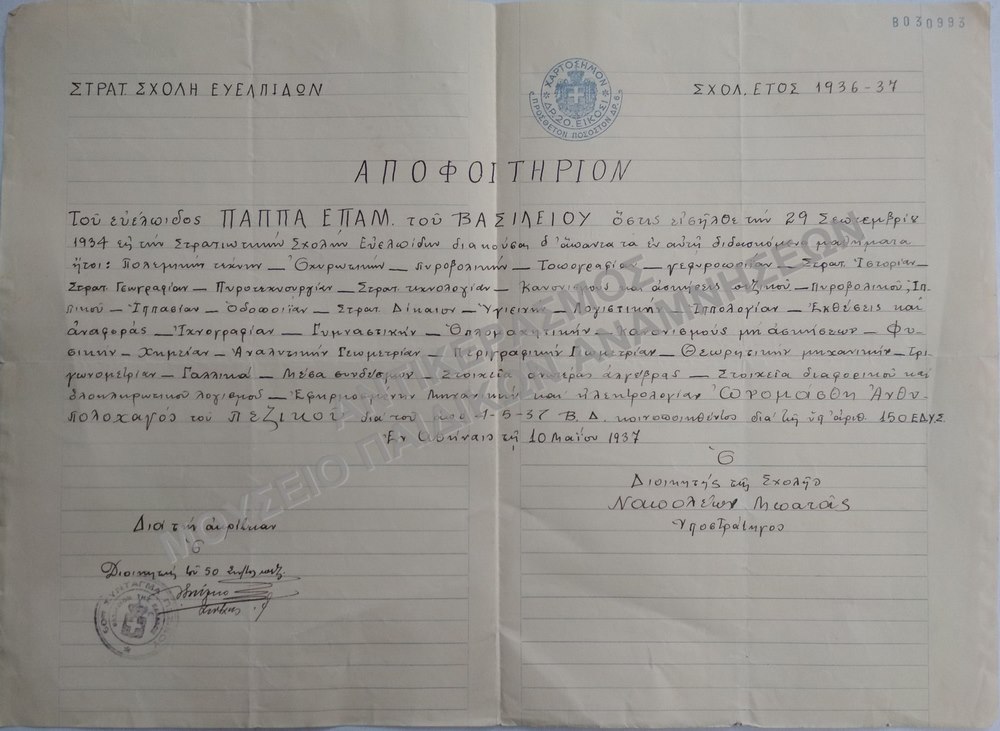 8030993
ΣΤΡΑΤ. ΣΧΟΛΗ ΕΥΕΛΠΙΔΩΝ
ΧΑΡΤΟΣΗΜΟΝ
ΔΡ. 20 ΕΙΚΟΣΙ
ΠΡΟΣΘΕΤΟΝ ΠΟΣΟΣΤΟΝ ΔΡ. 6
ΣΧΟΛ. ΕΤΟΣ 1936-37
ΑΠΟΦΟΙΤΗΡΙΟΝ
Τοῦ εὐέλπιδος ΠΑΠΠΑ ΕΠΑΜ. τοῦ ΒΑΣΙΛΕΙΟΥ ὅστις εἰσῆλθε τὴν 29 Σεπτεμβρίου
1934 εἰς τὴν Στρατιωτικὴν Σχολὴν Εὐελπίδων διακούσας δ' ἅπαντα τὰ ἐν αὐτῇ διδασκόμενα μαθήματα
ἤτοι: Πολεμικὴν τέχνην – Ὀχυρωτικὴν – Πυροβολικὴν – Τοπογραφίαν – γεφυροποιΐαν – Στρατ. Ἱστορίαν –
Στρατ. Γεωγραφίαν – Πυροτεχνουργίαν – Στρατ. τεχνολογίαν – Κανονισμοὺς καὶ ἀσκήσεις πεζικοῦ – Πυροβολικοῦ, Ἱπ-
πικοῦ – Ἱππασίαν – Ὁδοποιΐαν – Στρατ. Δίκαιον – Ὑγιεινὴν – Λογιστικὴν – Ἱππολογίαν – Ἐκθέσεις καὶ
ἀναφορὰς – Ἰχνογραφίαν – Γυμναστικὴν – Ὁπλομαχητικὴν – Κανονισμοὺς μὴ ἀσκήσεων – Φυ-
σικὴν – Χημείαν – Ἀναλυτικὴν Γεωμετρίαν – Περιγραφικὴν Γεωμετρίαν – Θεωρητικὴν μηχανικὴν – Τρι-
γωνομετρίαν – Γαλλικὰ – Μέσα συνδέσμων – Στοιχεῖα ἀνωτέρας ἀλγέβρας – Στοιχεῖα διαφορικοῦ καὶ
ὁλοκληρωτικοῦ λογισμοῦ – Ἐφηρμοσμένην Μηχανικὴν καὶ ἠλεκτρολογίαν Ὠνομάσθη Ἀνθυ-
πολοχαγὸς τοῦ ΠΕΖΙΚΟΥ διὰ τοῦ ἀπὸ 1-5-37 Β.Δ. κοινοποιηθέντος διὰ τῆς ὑπ' ἀριθ. 150 ΕΔΥΣ.
Ἐν Ἀθήναις τῇ 10 Μαΐου 1937
Ὁ
Διοικητὴς τῆς Σχολῆς
Ναπολέων Μπατᾶς
Ὑποστράτηγος
Διὰ τὴν ἀκρίβειαν
Ὁ
Διοικητὴς τοῦ 50 Συντ. πεζ.
ΣΥΝΤΑΓΜΑ
ΑΠΙΚΕΡΑΣΜΟΣ
ΜΟΥΣΕΙΟ ΠΑΙΔΙΚΩΝ ΑΝΑΜΝΗΣΕΩΝ